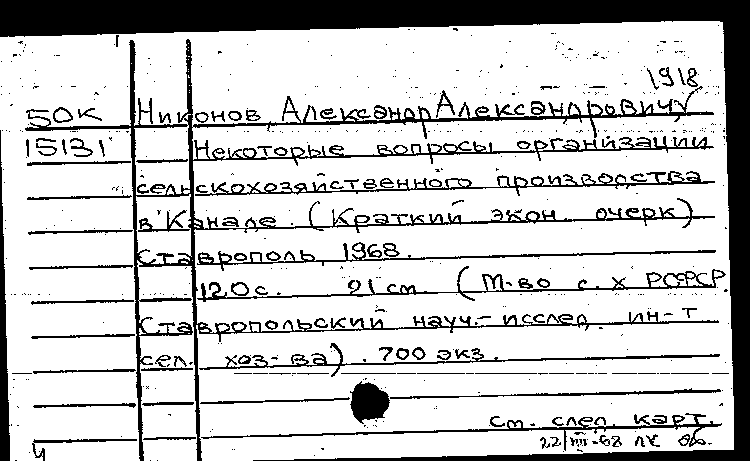 1918
50К Никонов, Александр Александрович
15131 Некоторые вопросы организации
сельскохозяйственного производства
в Канаде. (Краткий экон. очерк)
Ставрополь, 1968.
120с. 21 см. (М-во с. х РСФСР.
Ставропольский науч.-исслед. ин-т
сел. хоз-ва). 700 экз.
См. след. карт.
22/III-68 ЛК
ч